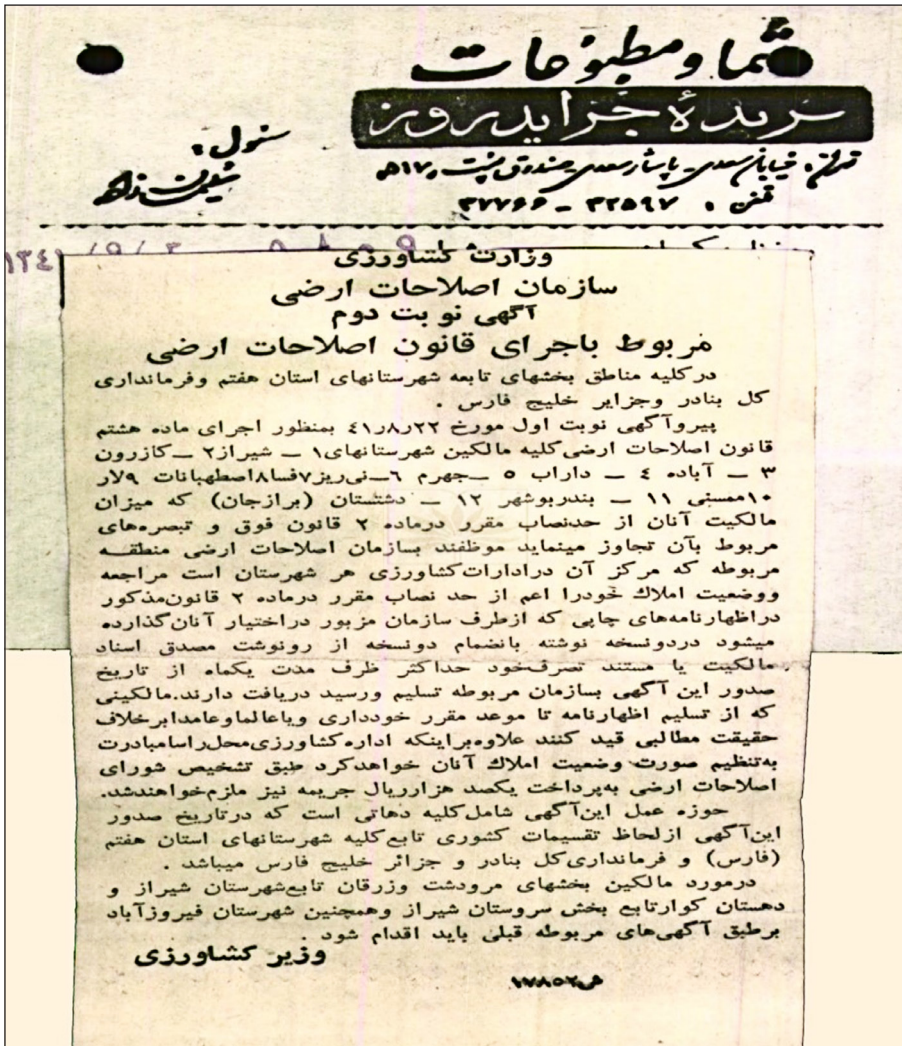 شما و مطبوعات
بریدهٔ جراید روز
مسئول:
تهران، خیابان سعدی - پاساژ سعدی - صندوق پست ۵۱۷
تلفن : ۳۲۵۹۷ - ۳۷۷۶۶
وزارت کشاورزی
سازمان اصلاحات ارضی
آگهی نوبت دوم
مربوط باجرای قانون اصلاحات ارضی
درکلیه مناطق بخشهای تابعه شهرستانهای استان هفتم وفرمانداری
کل بنادر وجزایر خلیج فارس .
پیروآگهی نوبت اول مورخ ۴۱٫۸٫۲۲ بمنظور اجرای ماده هشتم
قانون اصلاحات ارضی‌کلیه مالکین شهرستانهای۱ – شیراز۲ –کازرون
۳ – آباده ۴ – داراب ۵ –جهرم ۶–نی‌ریز۷فسا۸اصطهبانات ۹لار
۱۰ممسنی ۱۱ – بندربوشهر ۱۲ – دشتستان (برازجان) که میزان
مالکیت آنان از حدنصاب مقرر درماده ۲ قانون فوق و تبصره‌های
مربوط بآن تجاوز مینماید موظفند بسازمان اصلاحات ارضی منطقه
مربوطه که مرکز آن درادارات‌کشاورزی هر شهرستان است مراجعه
ووضعیت املاک خودرا اعم از حد نصاب مقرر درماده ۲ قانون‌مذکور
دراظهارنامه‌های چاپی که ازطرف سازمان مزبور دراختیار آنان‌گذارده
میشود دردونسخه نوشته بانضمام دونسخه از رونوشت مصدق اسناد
مالکیت یا مستند تصرف‌خود حداکثر ظرف مدت یکماه از تاریخ
صدور این آگهی بسازمان مربوطه تسلیم ورسید دریافت دارند.مالکینی
که از تسلیم اظهارنامه تا موعد مقرر خودداری ویاعالماوعامدابرخلاف
حقیقت مطالبی قید کنند علاوه‌براینکه اداره‌کشاورزی‌محل‌راسامبادرت
به‌تنظیم صورت وضعیت املاک آنان خواهدکرد طبق تشخیص شورای
اصلاحات ارضی به‌پرداخت یکصد هزارریال جریمه نیز ملزم‌خواهندشد.
حوزه عمل این‌آگهی شامل‌کلیه دهاتی است که درتاریخ صدور
این‌آگهی ازلحاظ تقسیمات کشوری تابع‌کلیه شهرستانهای استان هفتم
(فارس) و فرمانداری‌کل بنادر و جزائر خلیج فارس میباشد .
درمورد مالکین بخشهای مرودشت وزرقان تابع‌شهرستان شیراز و
دهستان کوارتابع بخش سروستان شیراز وهمچنین شهرستان فیروزآباد
برطبق آگهی‌های مربوطه قبلی باید اقدام شود
وزیر کشاورزی